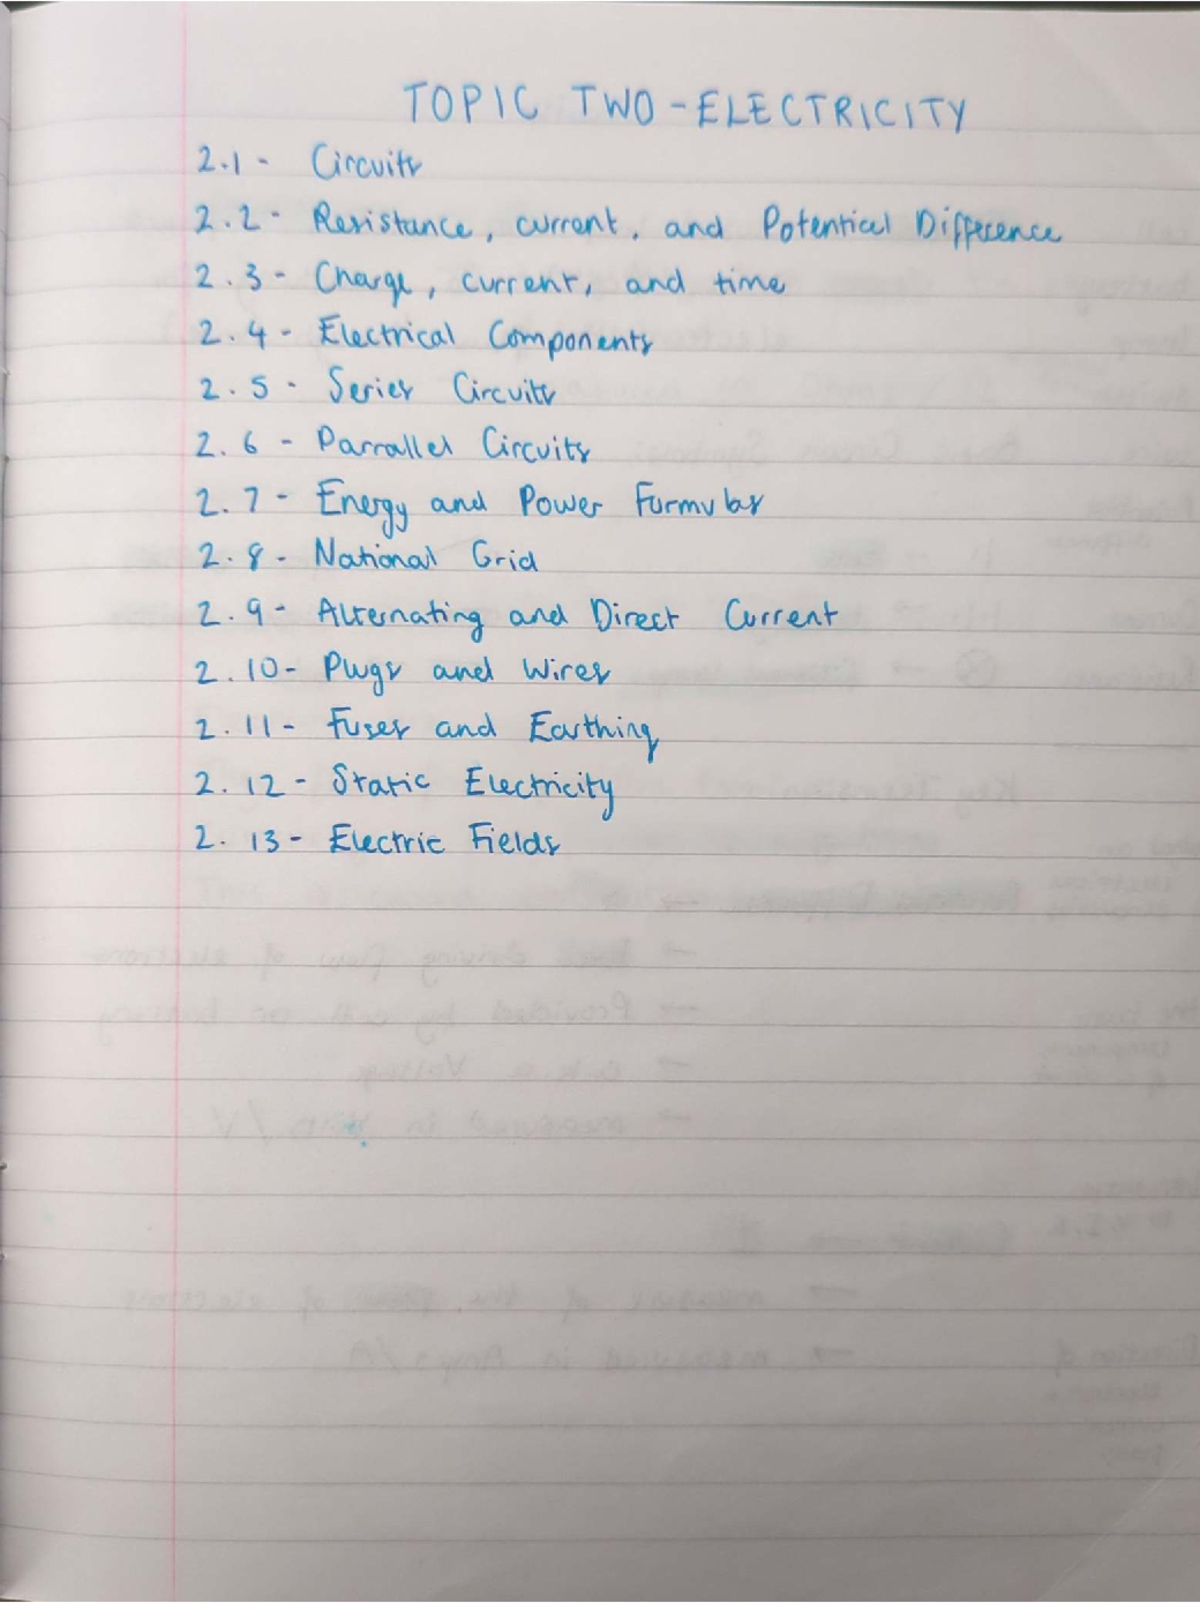 TOPIC TWO - ELECTRICITY
2.1 - Circuits
2.2 - Resistance, current, and Potential Difference
2.3 - Charge, current, and time
2.4 - Electrical Components
2.5 - Series Circuits
2.6 - Parrallel Circuits
2.7 - Energy and Power Formulas
2.8 - National Grid
2.9 - Alternating and Direct Current
2.10 - Plugs and Wires
2.11 - Fuses and Earthing
2.12 - Static Electricity
2.13 - Electric Fields